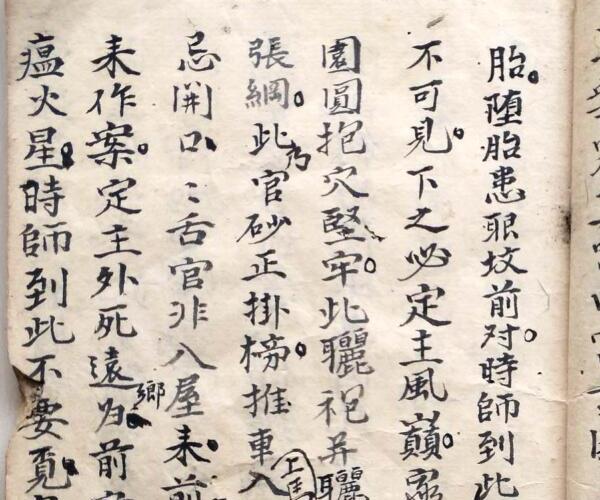 胎。堕胎患眼坟前对。時師到此
不可見。下之必定主風巔。
園圓抱穴堅牢。此曬袍并曬
張綱。此乃官砂正掛榜。推車入上馬
忌開口。口舌官非入屋來。前
来作案。定主外死遠鄉归前
瘟火星。時師到此不要覓。